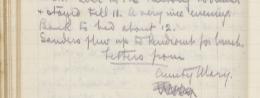 & stayed till 11. A very nice evening.
Back to bed about 12.
Sandero flew up to for lunch.
Letters from
Aunty Mary.